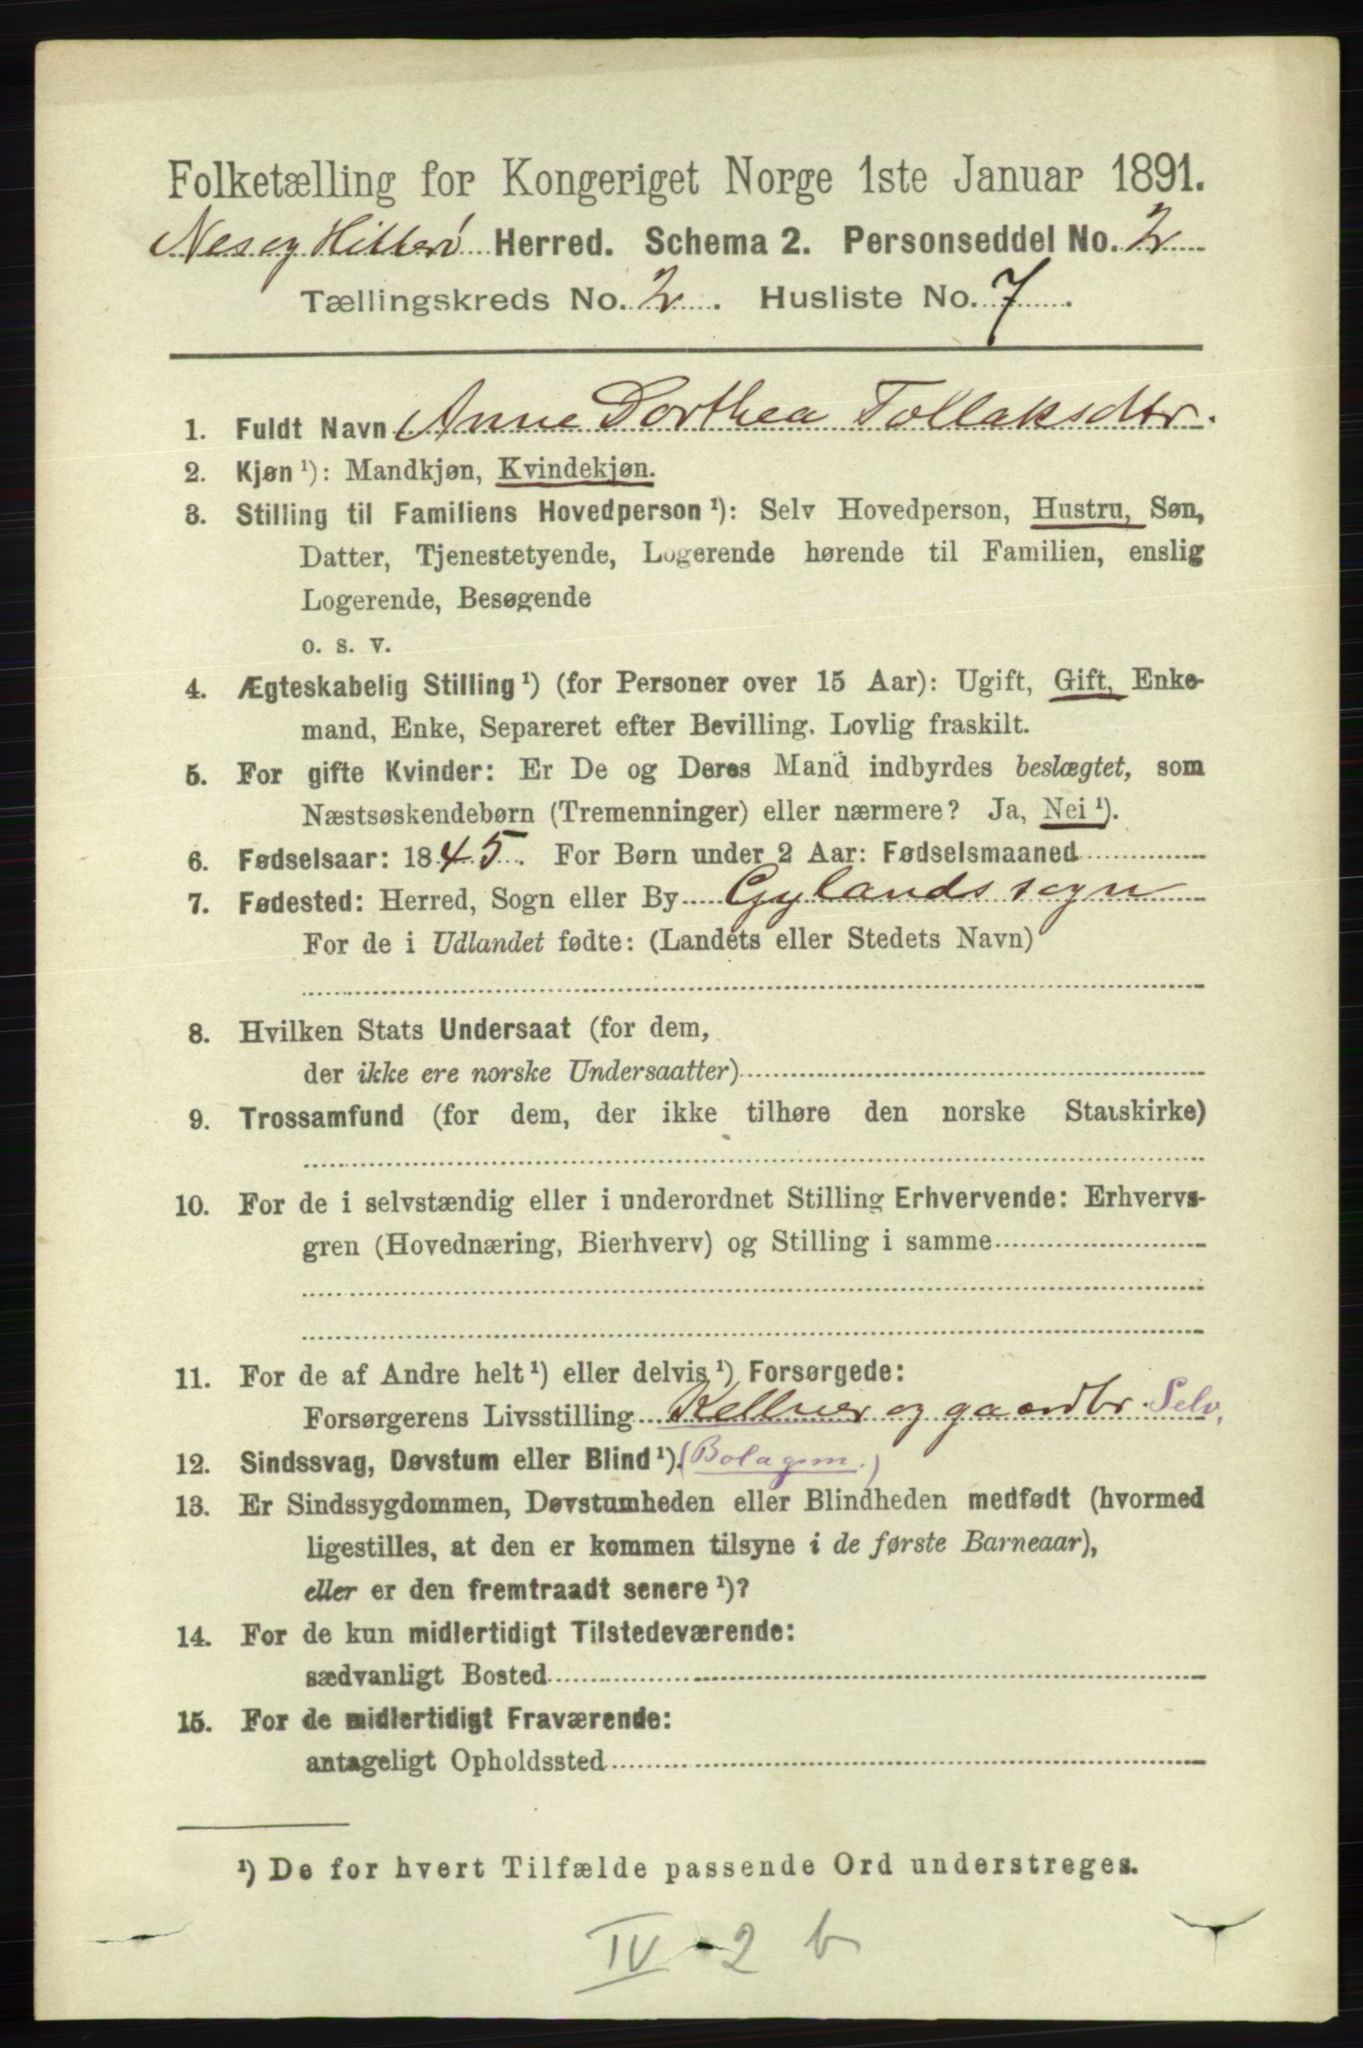 Folketælling for Kongeriget Norge 1ste Januar 1891.
Nes og Hitterö Herred. Schema 2. Personseddel No. 2
Tællingskreds No. 2. Husliste No. 7.
1. Fuldt Navn Anne Dorthea Tollaksdtr.
2. Kjøn ¹): Mandkjøn, Kvindekjøn.
3. Stilling til Familiens Hovedperson ¹): Selv Hovedperson, Hustru, Søn,
Datter, Tjenestetyende, Logerende hørende til Familien, enslig
Logerende, Besøgende
o. s. v.
4. Ægteskabelig Stilling ¹) (for Personer over 15 Aar): Ugift, Gift, Enke-
mand, Enke, Separeret efter Bevilling. Lovlig fraskilt.
5. For gifte Kvinder: Er De og Deres Mand indbyrdes beslægtet, som
Næstsøskendebørn (Tremenninger) eller nærmere? Ja, Nei ¹).
6. Fødselsaar: 1845. For Børn under 2 Aar: Fødselsmaaned
7. Fødested: Herred, Sogn eller By Gylands sogn
For de i Udlandet fødte: (Landets eller Stedets Navn)
8. Hvilken Stats Undersaat (for dem,
der ikke ere norske Undersaatter)
9. Trossamfund (for dem, der ikke tilhøre den norske Statskirke)
10. For de i selvstændig eller i underordnet Stilling Erhvervende: Erhvervs-
gren (Hovednæring, Bierhverv) og Stilling i samme
11. For de af Andre helt ¹) eller delvis ¹) Forsørgede:
Forsørgerens Livsstilling Kellner og gaardbr. Selv.
12. Sindssvag, Døvstum eller Blind ¹). (Bolagsm.)
13. Er Sindssygdommen, Døvstumheden eller Blindheden medfødt (hvormed
ligestilles, at den er kommen tilsyne i de første Barneaar),
eller er den fremtraadt senere ¹)?
14. For de kun midlertidigt Tilstedeværende:
sædvanligt Bosted
15. For de midlertidigt Fraværende:
antageligt Opholdssted
¹) De for hvert Tilfælde passende Ord understreges.
IV-2 b